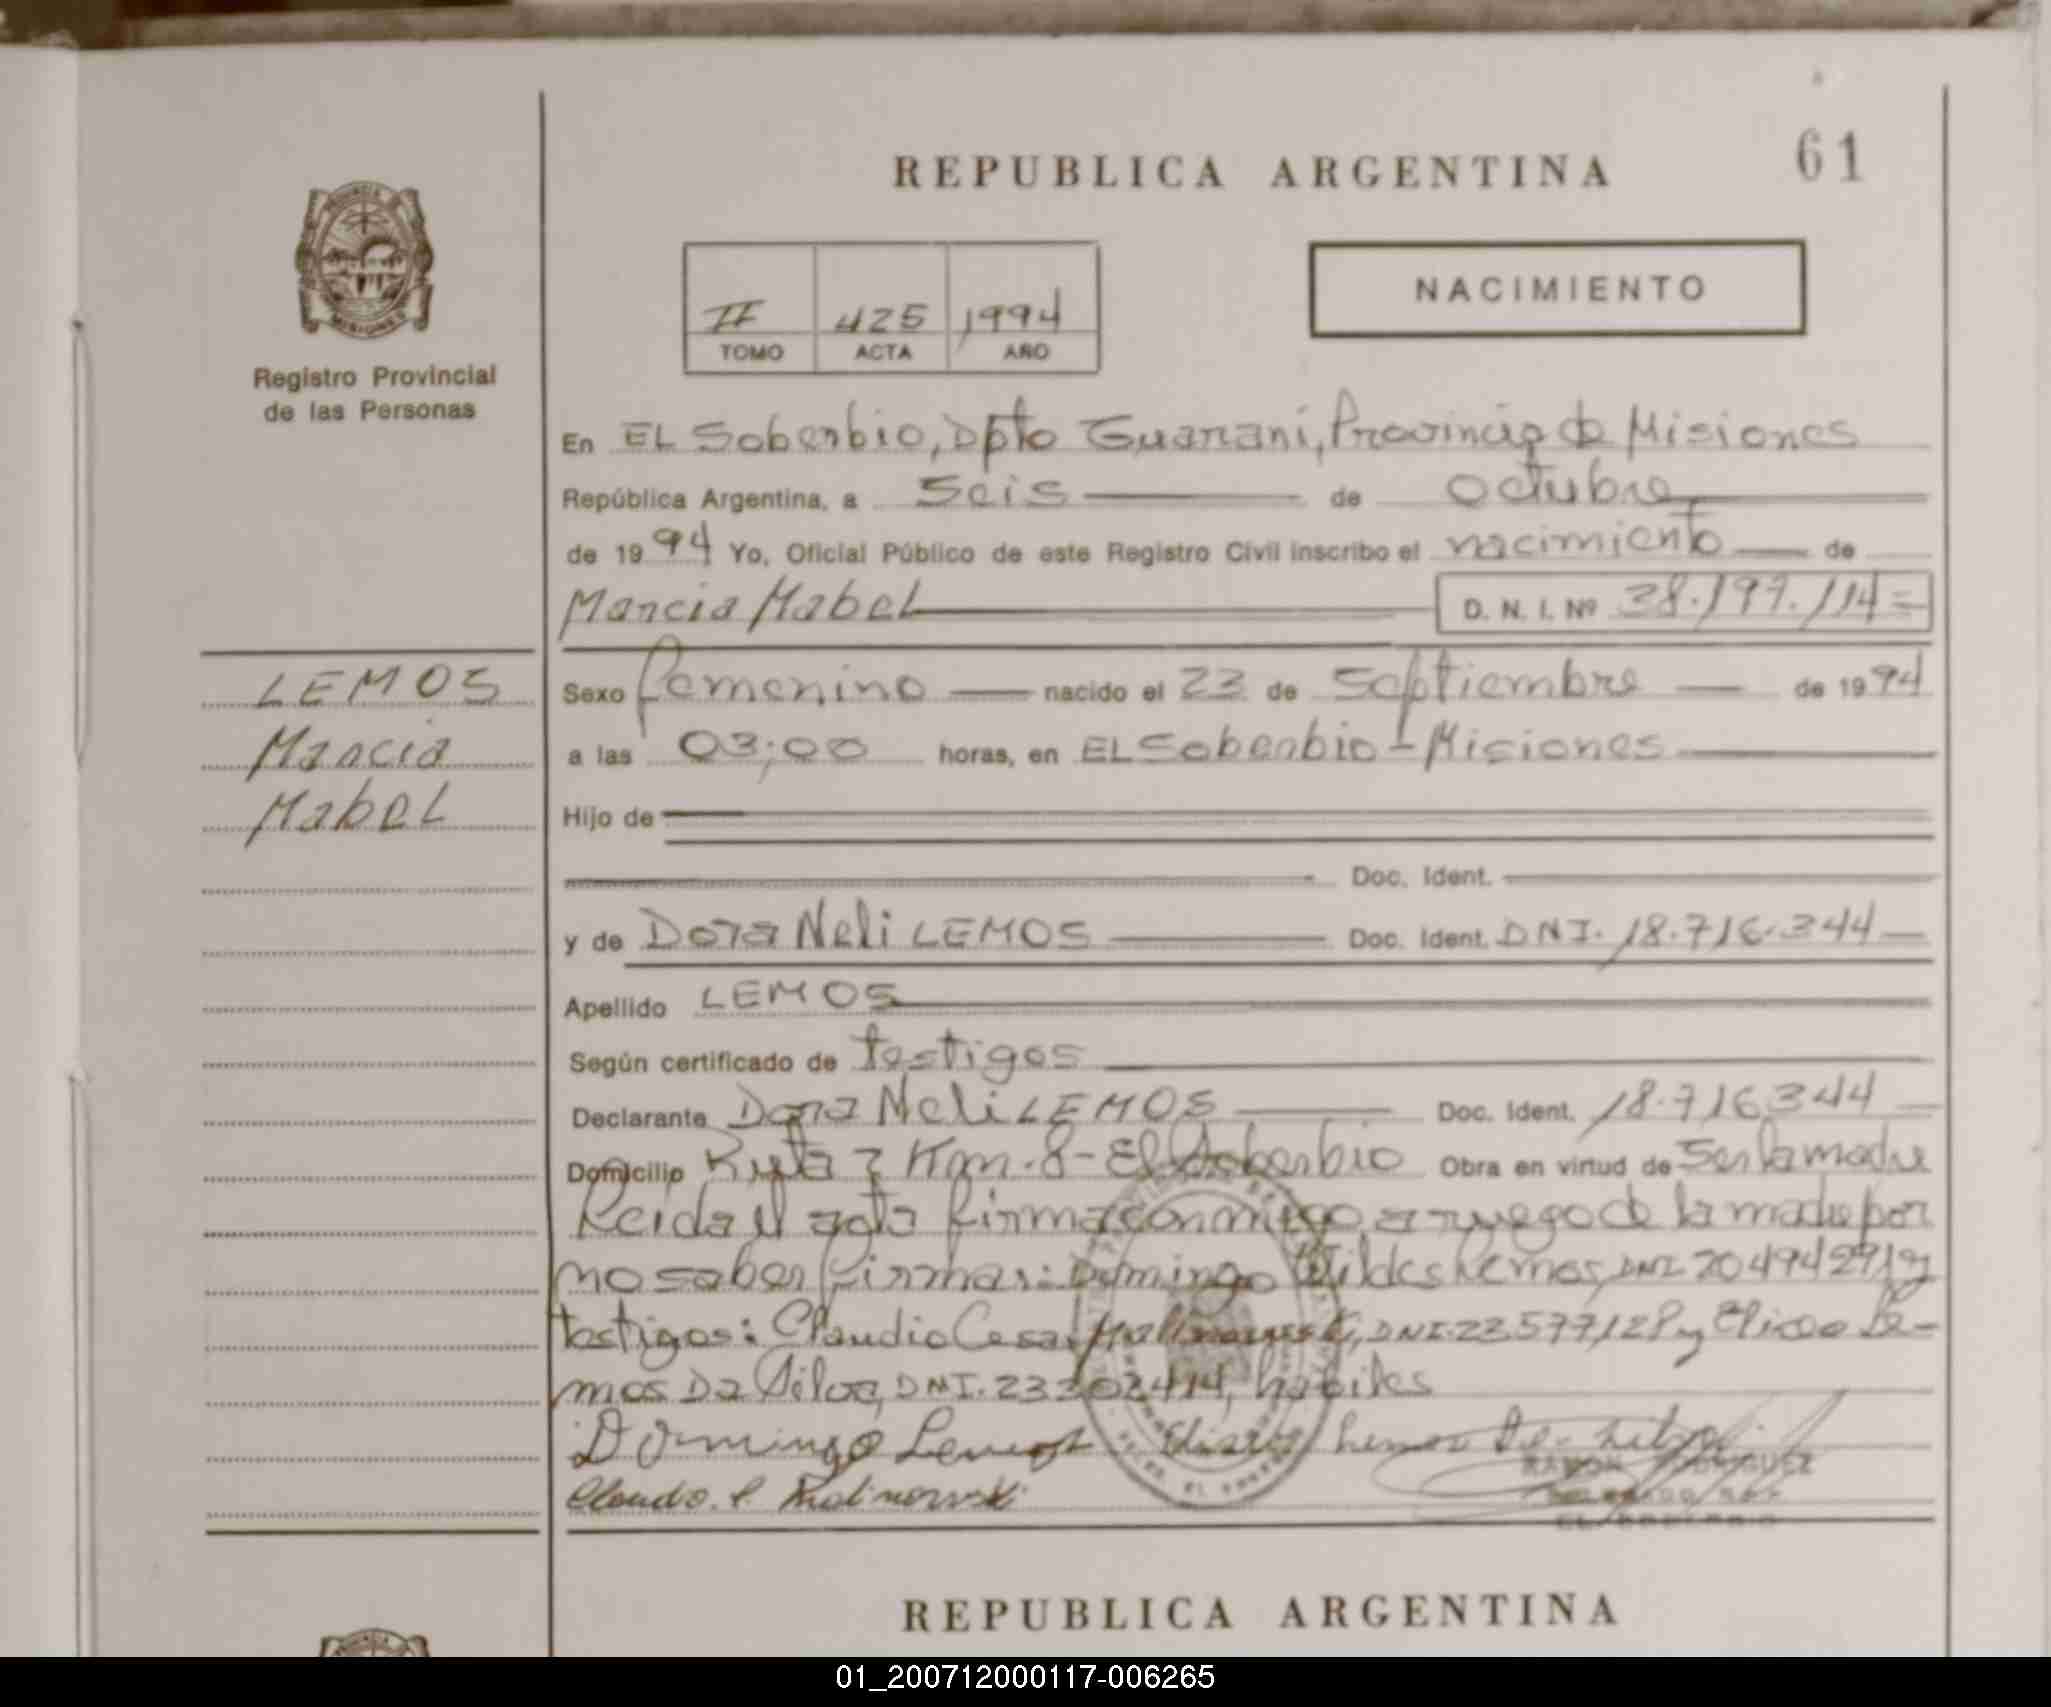 61
REPUBLICA ARGENTINA
NACIMIENTO
II 425 1994
TOMO ACTA AÑO
Registro Provincial
de las Personas
En EL Soberbio, Dpto Guarani, Provincia de Misiones
República Argentina, a seis de octubre
de 1994 Yo, Oficial Público de este Registro Civil inscribo el nacimiento de
Marcia Mabel D. N. I. Nº 38.197.114=
LEMOS
Marcia
Mabel
Sexo femenino nacido el 23 de septiembre de 1994
a las 03;00 horas, en EL Soberbio - Misiones
Hijo de
Doc. Ident.
y de Dora Neli LEMOS Doc. Ident. DNI. 18.716.344
Apellido LEMOS
Según certificado de testigos
Declarante Dora Neli LEMOS Doc. Ident. 18.716344
Domicilio Ruta 2 Km. 8 - El Soberbio Obra en virtud de ser la madre
Leida el acta firma conmigo, a ruego de la madre por
no saber firmar: Domingo Lemos, DNI. 20494291 y
testigos: Claudio Cesar DNI. 23577128 y Eliseo Le-
mos Da Silva, DNI. 23302414, habiles
Domingo Lemos Lemos Da
Claudio. C. Malinowski
RAMON RODRIGUEZ
DELEGADO R.P.P.
EL SOBERBIO
REPUBLICA ARGENTINA
01_200712000117-006265